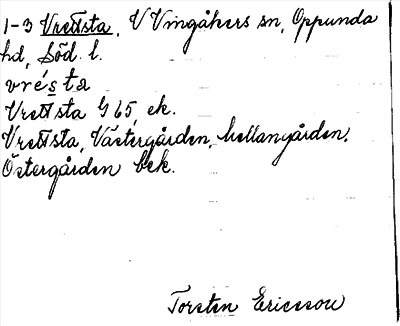 1-3 Vrettsta, V Vingåkers sn, Oppunda
hd, Söd. l.
vrésta
Vrettsta G 65, ek.
Vrettsta, Västergården, Mellangården,
Östergården bek.
Torsten Ericsson